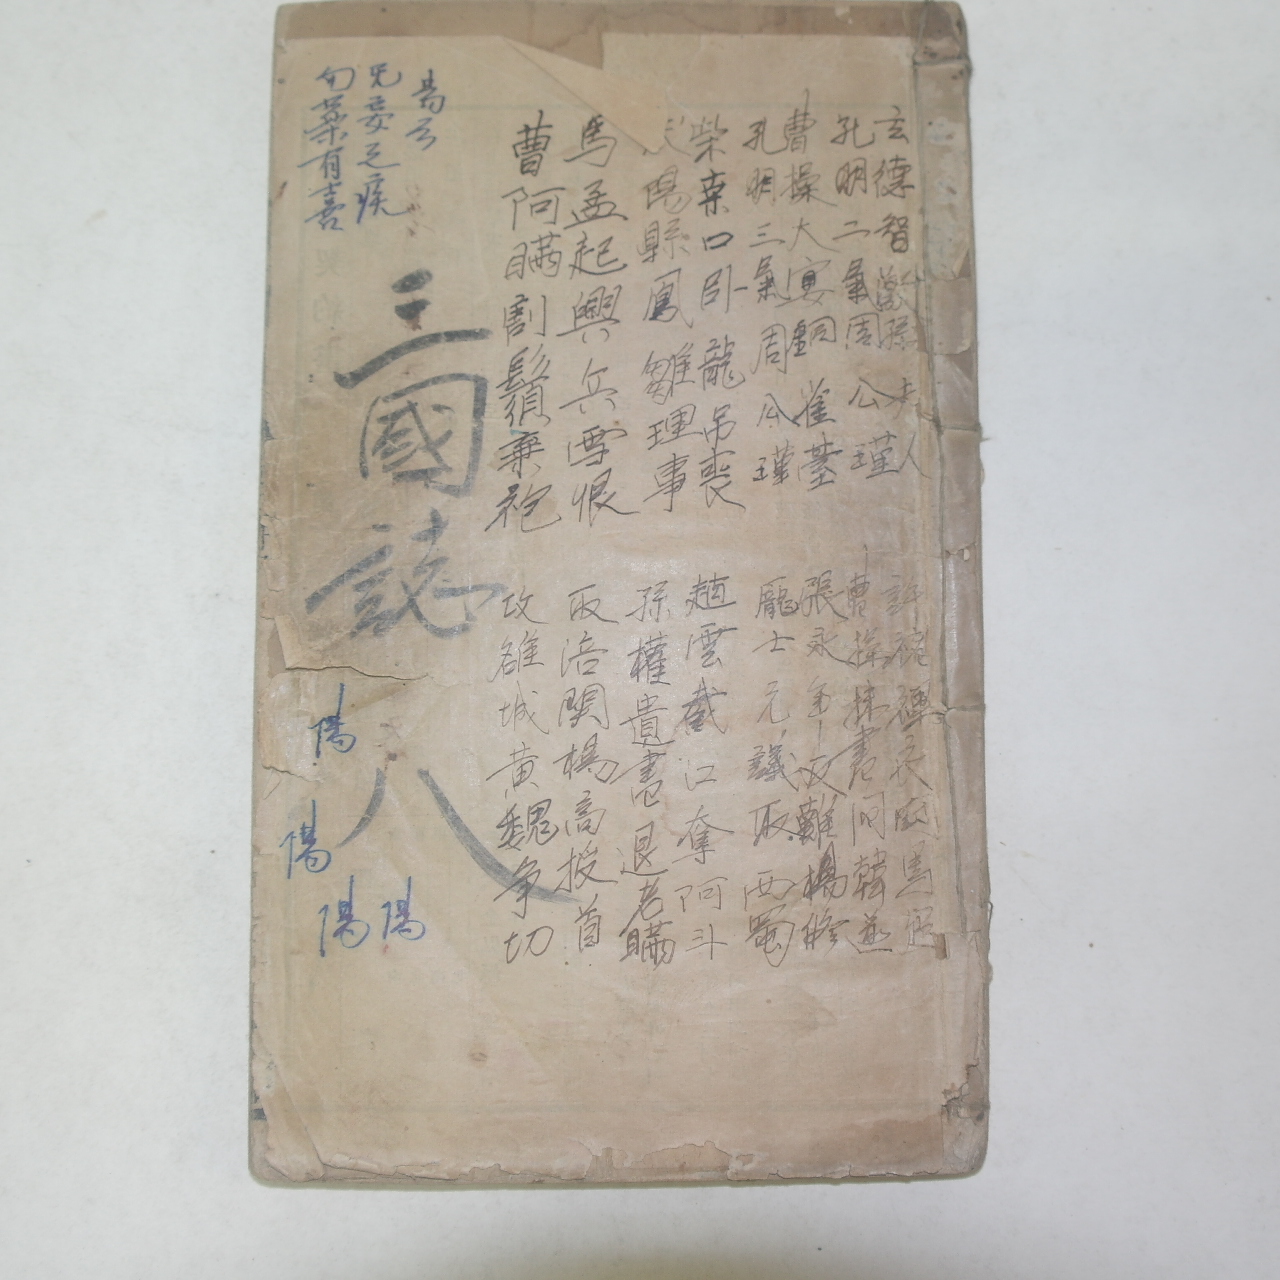 玄德智激孫夫人
孔明二氣周公瑾
曹操大宴銅雀臺
孔明三氣周公瑾
柴桑口卧龍吊喪
陽縣鳳雛理事
馬孟起興兵雪恨
曹阿瞞割鬚棄袍
許褚裸衣鬪馬超
曹操抹書间韓遂
張永年反難楊修
龐士元議取西蜀
趙雲截江奪阿斗
孫權遺書退老瞞
取涪関楊高授首
攻雒城黄魏争切
三國誌 八
易云
无妄之疾
勿藥有喜
陽
陽
陽
陽